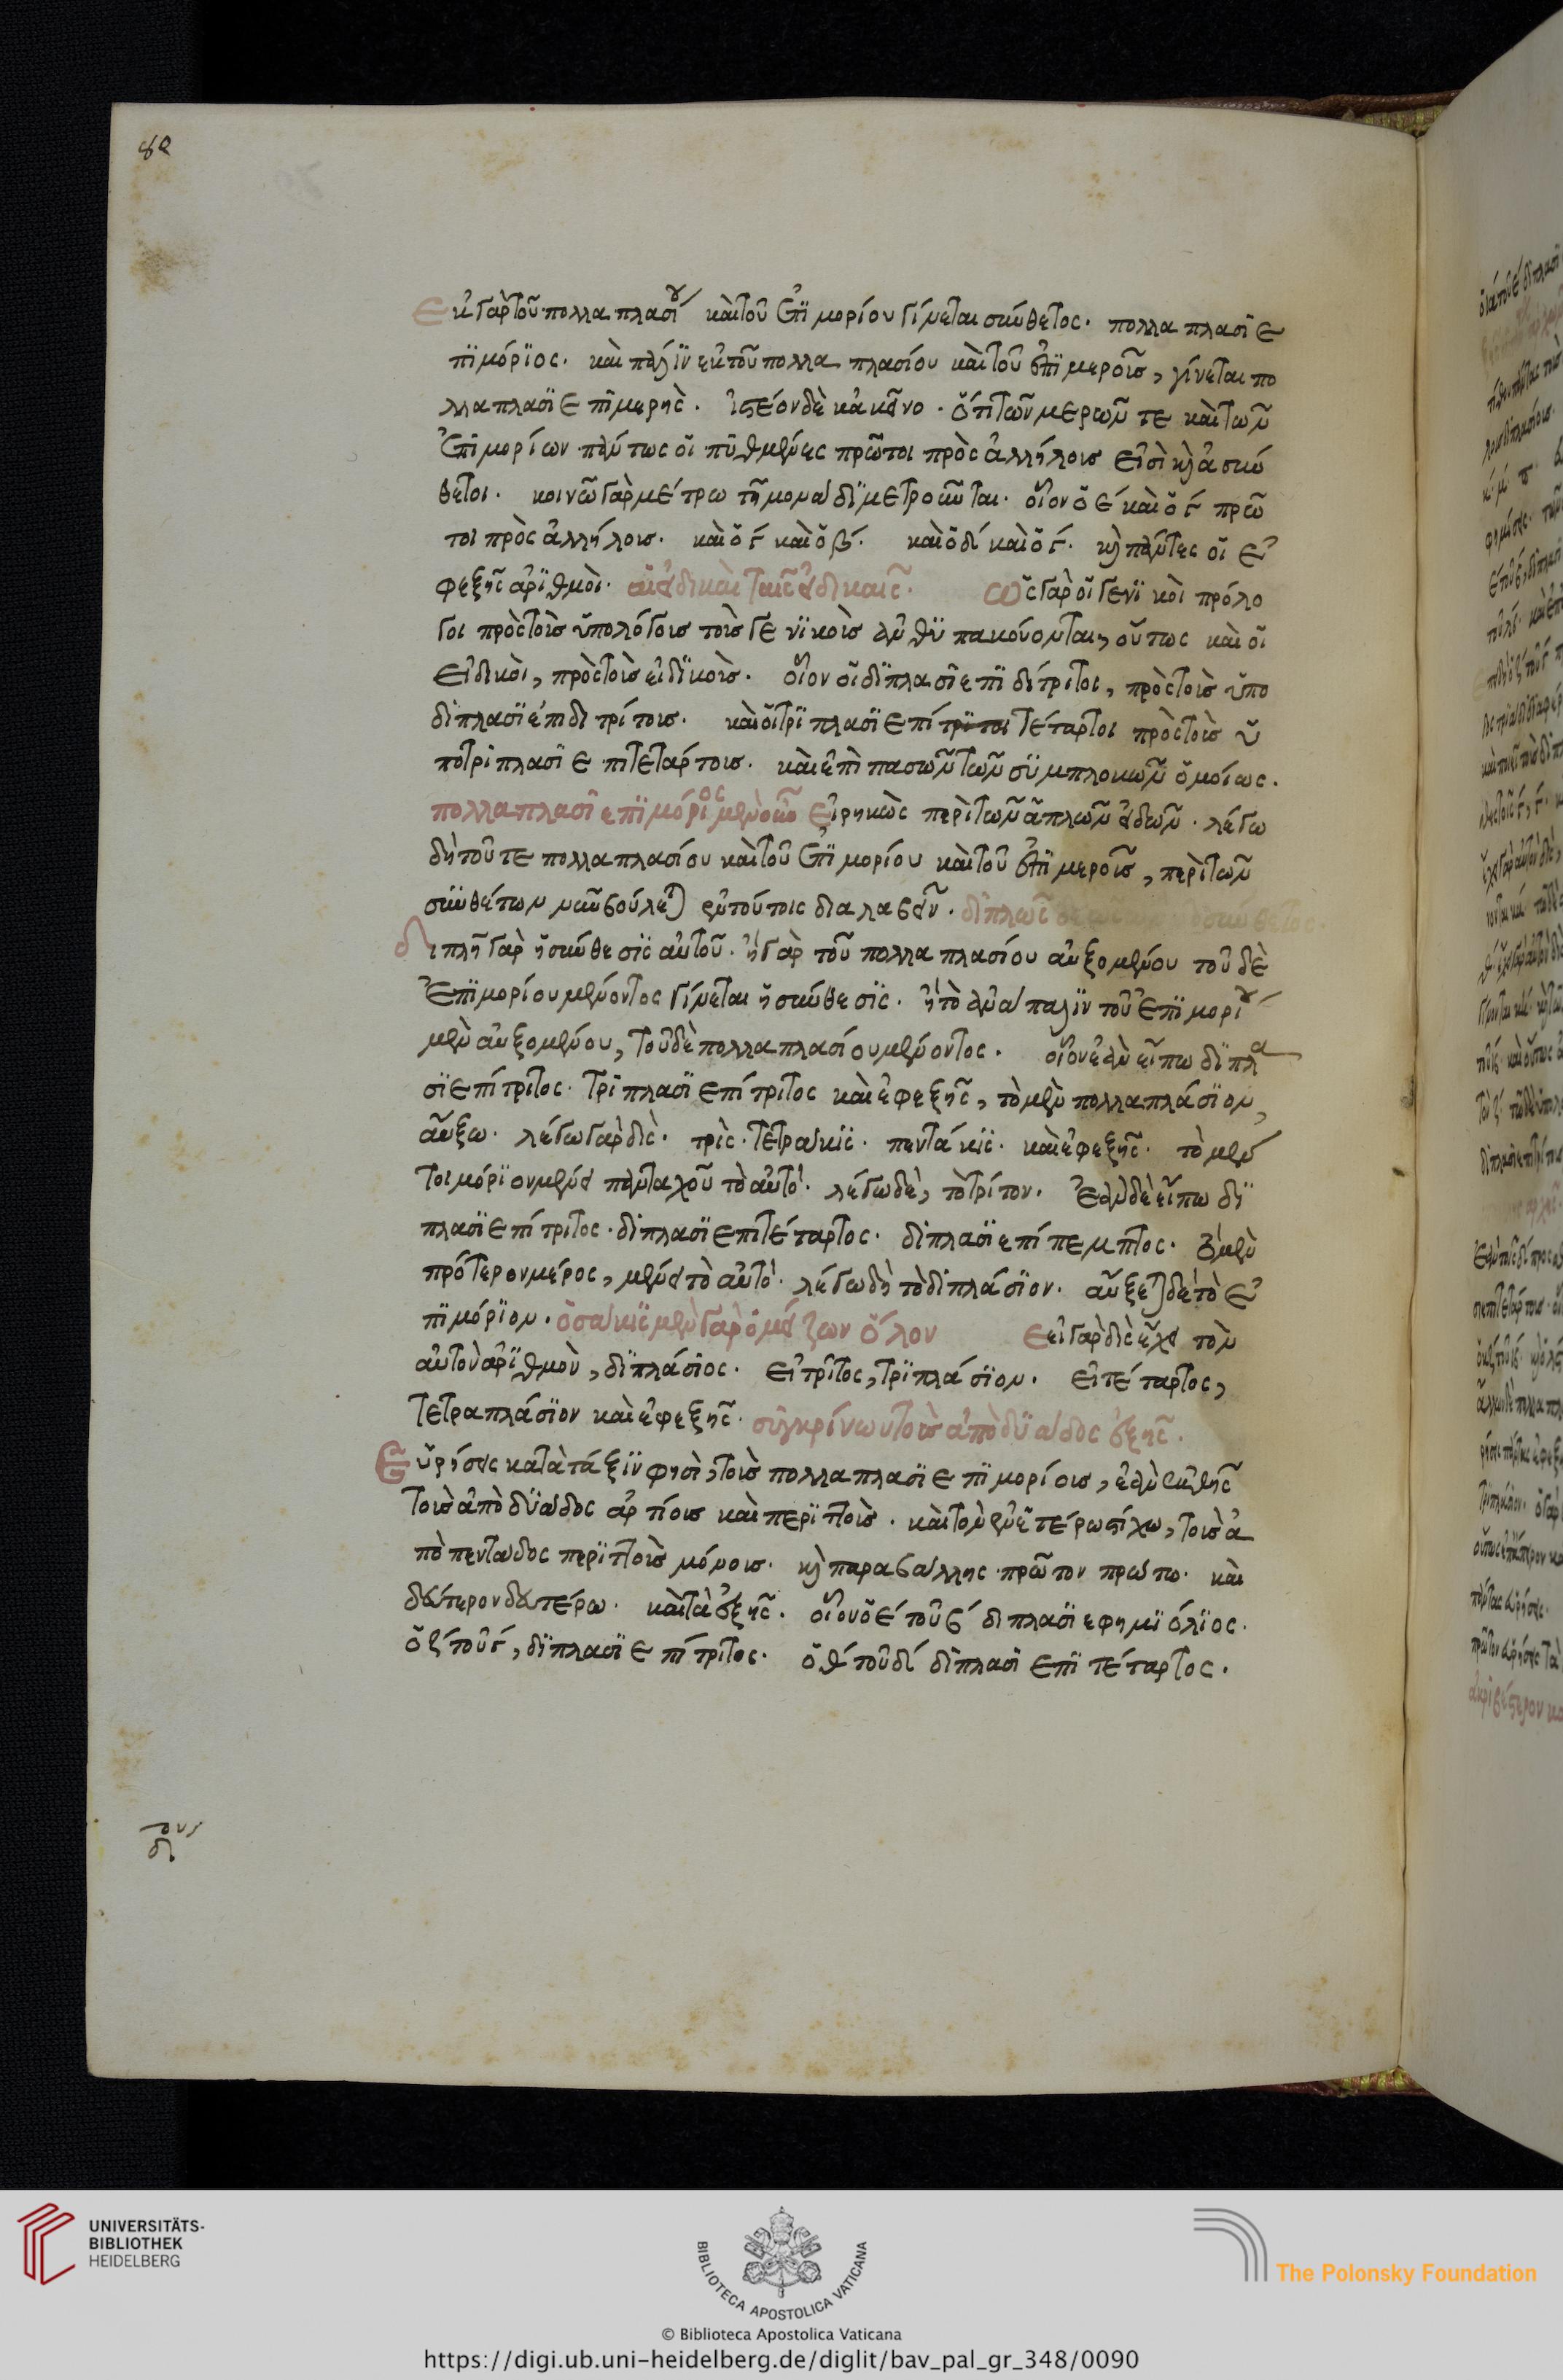 82
Ἐκ γὰρ τοῦ πολλαπλασίου καὶ τοῦ ἐπιμορίου γίνεται σύνθετος. πολλαπλασιε
πϊμόριος. καὶ πάλιν ἐκ τοῦ πολλαπλασίου καὶ τοῦ ἐπιμεροῦς, γίνεται πο
λλαπλασϊεπιμερής. ἰστέον δὲ κἀκεῖνο. ὅτι τῶν μερῶν τε καὶ τῶν
ἐπιμορίων πάντως οἱ πυθμένες πρῶτοι πρὸς ἀλλήλους εἰσὶ καὶ ἀσύν
θετοι. κοινῷ γὰρ μέτρω τῆ μονάδι μετροῦνται. οἷον ὁ ε΄ καὶ ὁ γ΄ πρῶ
τοι πρὸς ἀλλήλους. καὶ ὁ γ΄ καὶ ὁ β΄. καὶ ὁ δ΄ καὶ ὁ γ΄. καὶ πάντες οἱ ἐ
φεξῆς ἀρϊθμοὶ. αἱ εἰδικαὶ ταῖς εἰδικαῖς. Ὡς γὰρ οἱ γενϊκοὶ πρόλο
γοι πρὸς τοὺς ὑπολόγους τοὺς γενϊκοὺς ἀνθϋπακούονται, οὕτως καὶ οἱ
εἰδικοὶ, πρὸς τοὺς εἰδϊκούς. οἷον οἱ διπλασιεπιδίτριτοι, πρὸς τοὺς ὑπο
διπλασϊεπιδιτρίτους. καὶ οἱ τριπλασϊεπίτριτοι τέταρτοι πρὸς τοὺς ὑ
ποτριπλασϊεπιτετάρτους. καὶ ἐπὶ πασῶν τῶν συμπλοκῶν ὁμοίως.
πολλαπλασϊεπϊμόριος μὲν οὖν Εἰρηκὼς περὶ τῶν ἁπλῶν εἰδῶν. λέγω
δὴ τοῦ τε πολλαπλασίου καὶ τοῦ ἐπιμορίου καὶ τοῦ ἐπιμεροῦς, περὶ τῶν
συνθέτων νῦν βούλεται ἐν τούτοις διαλαβεῖν. διπλῶς
διπλῆ γὰρ ἡ σύνθεσις αὐτοῦ. ἢ γὰρ τοῦ πολλαπλασίου αὐξομένου τοῦ δὲ
ἐπϊμορίου μένοντος γίνεται ἡ σύνθεσις. ἢ τὸ ἀνάπαλιν τοῦ ἐπϊμορίου
μὲν αὐξομένου, τοῦ δὲ πολλαπλασίου μένοντος. οἷον ἐὰν εἴπω διπλα
σϊεπίτριτος. τριπλασϊεπίτριτος καὶ ἐφεξῆς, τὸ μὲν πολλαπλάσϊον,
αὔξω. λέγω γὰρ δὶς. τρὶς. τετράκϊς. πεντάκϊς. καὶ ἐφεξῆς. τὸ μέν
τοι μόρϊον μένει πανταχοῦ τὸ αὐτό. λέγω δὲ, τὸ τρίτον. ἐὰν δὲ εἴπω δϊ
πλασϊεπίτριτος. διπλασϊεπιτέταρτος. διπλασϊεπίπεμπτος. τὸ μὲν
πρότερον μέρος, μένει τὸ αὐτό. λέγω δὴ τὸ διπλάσϊον. αὔξεται δὲ τὸ ἐ
πϊμόρϊον. ὁσάκϊς μὲν γὰρ ὁ μείζων ὅλον Εεἰ γὰρ δὶς ἔχει τὸν
αὐτὸν ἀρϊθμὸν, διπλάσϊος. εἰ τρίτος, τριπλάσϊον. εἰ τέταρτος,
τετραπλάσϊον καὶ ἐφεξῆς. συγκρίνων τοὺς ἀπὸ δυάδος ἑξῆς.
Εὑρήσεις κατὰ τάξϊν φησὶ, τοὺς πολλαπλασϊεπϊμορίους, ἐὰν ἐκθῆς
τοὺς ἀπὸ δϋάδος ἀρτίους καὶ περϊττοὺς. καὶ τὸν ἐν ἑτέρω στίχω, τοὺς ἀ
πὸ πεντάδος περϊττοὺς μόνους. καὶ παραβάλλης πρῶτον πρώτω. καὶ
δεύτερον δευτέρω. καὶ τὰ ἑξῆς. οἷον ὁ ε΄ τοῦ β΄ διπλασϊεφημϊόλϊος.
ὁ ζ΄ τοῦ γ΄, διπλασϊεπίτριτος. ὁ θ΄ τοῦ δ΄ διπλασϊεπϊτέταρτος.
UNIVERSITÄTS-
BIBLIOTHEK
HEIDELBERG
BIBLIOTECA APOSTOLICA VATICANA
The Polonsky Foundation
© Biblioteca Apostolica Vaticana
https://digi.ub.uni-heidelberg.de/diglit/bav_pal_gr_348/0090